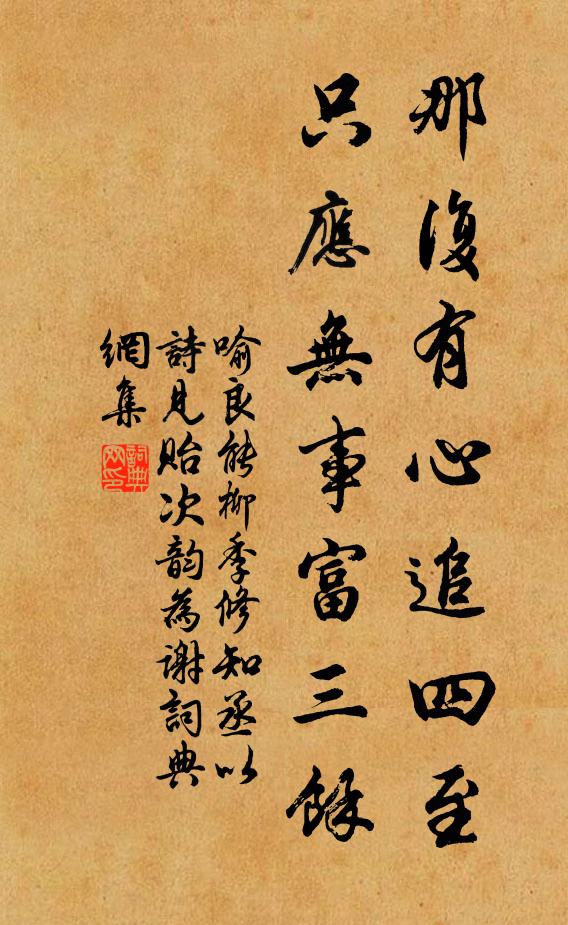 那復有心追四至
只應無事富三餘
喻良能柳季修知丞以
詩見貽次韵為谢詞典
網集
詞典網印